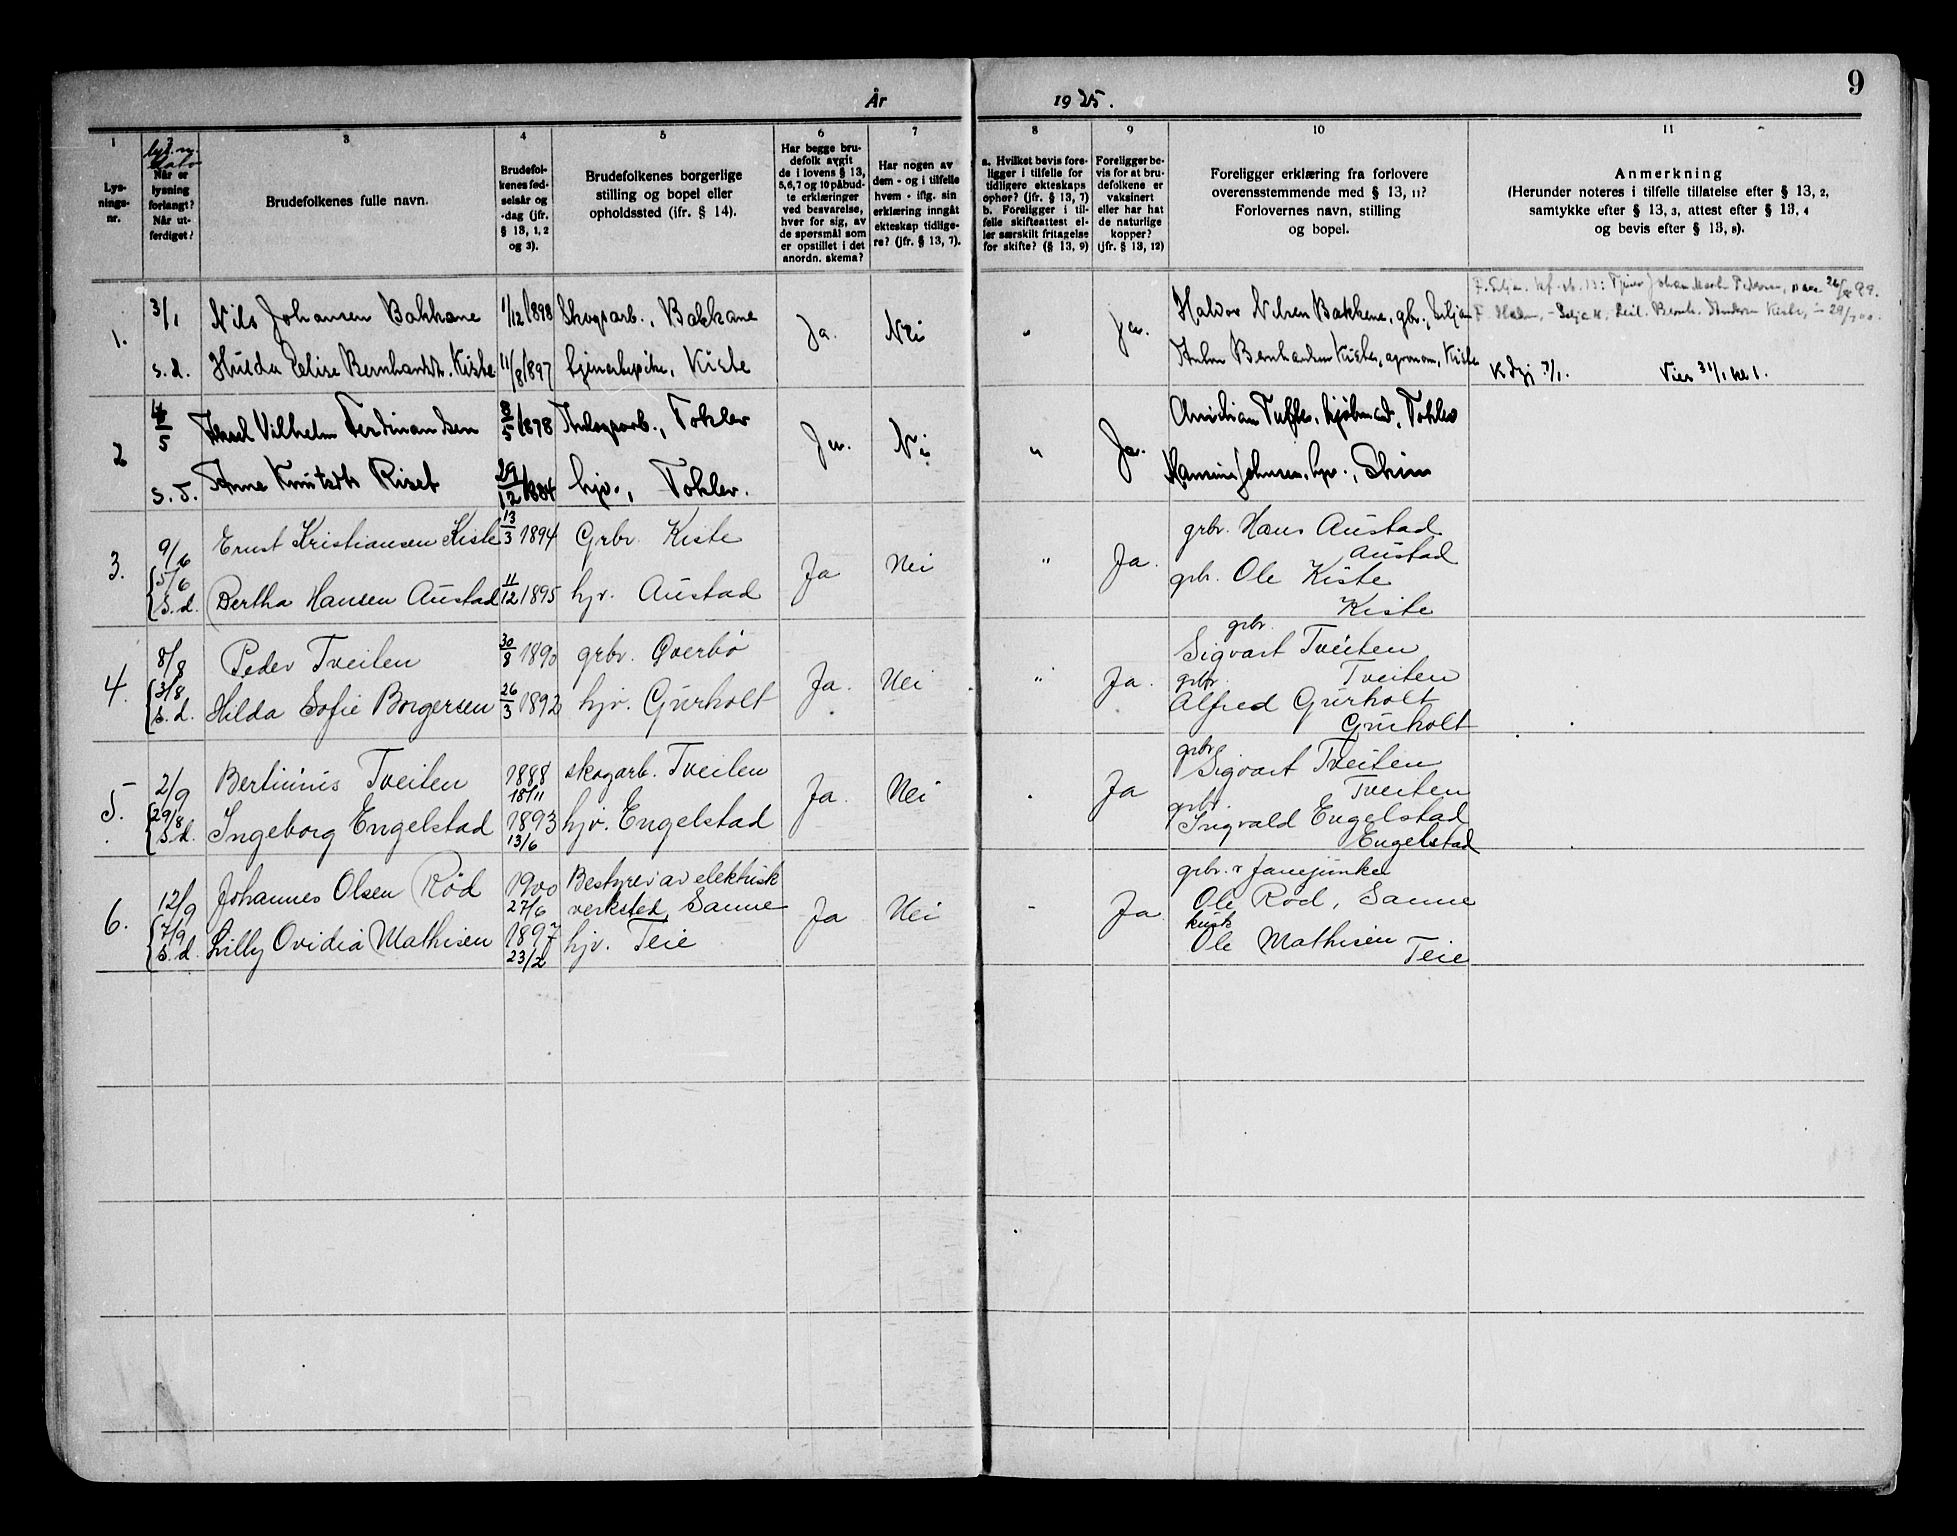 9
År 1925.
1
2
3
4
5
6
7
8
9
10
11
Lys-
nings-
nr.
Når er
lysning
forlangt?
Når ut-
ferdiget?
Brudefolkenes fulle navn.
Brudefol-
kenes fød-
selsår og
-dag (jfr.
§ 13, 1, 2
og 3).
Brudefolkenes borgerlige
stilling og bopel eller
opholdssted (ifr. § 14).
Har begge bru-
defolk avgit
de i lovens § 13,
5,6,7 og 10 påbud-
te erklæringer
ved besvarelse,
hver for sig, av
de spørsmål som
er opstillet i det
anordn. skema?
Har nogen av
dem - og i tilfelle
hvem - iflg. sin
erklæring inngåt
ekteskap tidlige-
re? (jfr. § 13, 7).
a. Hvilket bevis fore-
ligger i tilfelle for
tidligere ekteskaps
ophør? (jfr. § 13, 7)
b. Foreligger i til-
felle skifteattest el-
ler særskilt fritagelse
for skifte? (§ 13, 9)
Foreligger be-
vis for at bru-
defolkene er
vaksinert
eller har hat
de naturlige
kopper?
(jfr. § 13, 12)
Foreligger erklæring fra forlovere
overensstemmende med § 13, 11?
Forlovernes navn, stilling
og bopel.
Anmerkning
(Herunder noteres i tilfelle tillatelse efter § 13, 2,
samtykke efter § 13, 3, attest efter § 13, 4
og bevis efter § 13, 8).
1. 3/1 Nils Johansen Bakkane 1/12 1898 Skogsarb., Bakkane Ja. Nei " Ja. Halvor Nilsen Bakkene, gbr., Siljan
s.d. Hulda Elise Bernhardsd. Kiste 11/8 1897 Kiste Bernhardsen Kiste, agronom, Kiste
2 4/5 Aksel Vilhelm Ferdinandsen 8/5 1878 Anlegsarb., Toklev Ja. Nei " Ja. Christian Tufte, kjøbmand, Toklev
s.d. Anne Knutsdtr Riset 29/12 1884 hjv., Toklev. Johnsen, hjv., Skien
3. 9/6 Ernst Kristiansen Kiste 13/3 1894 Grbr. Kiste Ja Nei " Ja. grbr. Hans Austad
Austad
5/6 s.d. Bertha Hansen Austad 11/12 1895 hjv. Austad grbr. Ole Kiste
Kiste
4. 8/8 Peder Tveiten 30/8 1890 grbr. Øverbø Ja. Nei " Ja. grbr.
Sigvart Tveiten
Tveiten
3/8 s.d. Hilda Sofie Borgersen 26/3 1892 hjv. Gurholt grbr.
Alfred Gurholt
Gurholt
5. 2/9 Bertinius Tveiten 1888 18/11 skogarb. Tveiten Ja. Nei Ja grbr
Sigvart Tveiten
Tveiten
29/8 s.d. Ingeborg Engelstad 1893 13/6 hjv. Engelstad grbr.
Ingvald Engelstad
Engelstad
6. 12/9 Johannes Olsen Rød 1900 27/6 Bestyrer av elektrisk
verksted, Sanne Ja Nei - Ja grbr.
Ole Rød, Sanne
7/9 s.d. Lilly Ovidia Mathisen 1897 23/2 hjv. Teie kusk
Ole Mathisen
Teie